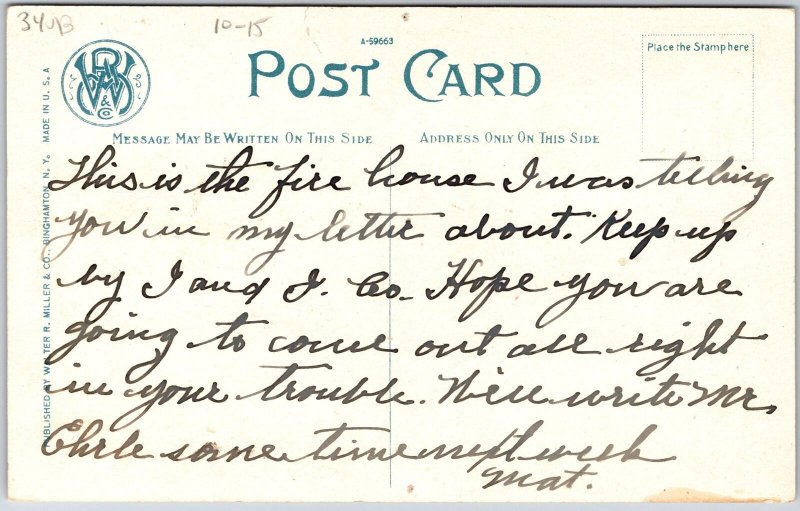 34UB
10-15
A-59663
POST CARD
Place the Stamp here
MESSAGE MAY BE WRITTEN ON THIS SIDE
ADDRESS ONLY ON THIS SIDE
PUBLISHED BY WALTER R. MILLER & CO., BINGHAMTON, N. Y. MADE IN U. S. A
This is the fire house I was telling
you in my letter about. Keep up
by I and J. Co. Hope you are
going to come out all right
in your trouble. Well write Mr.
Ehrle some time next week
Mat.